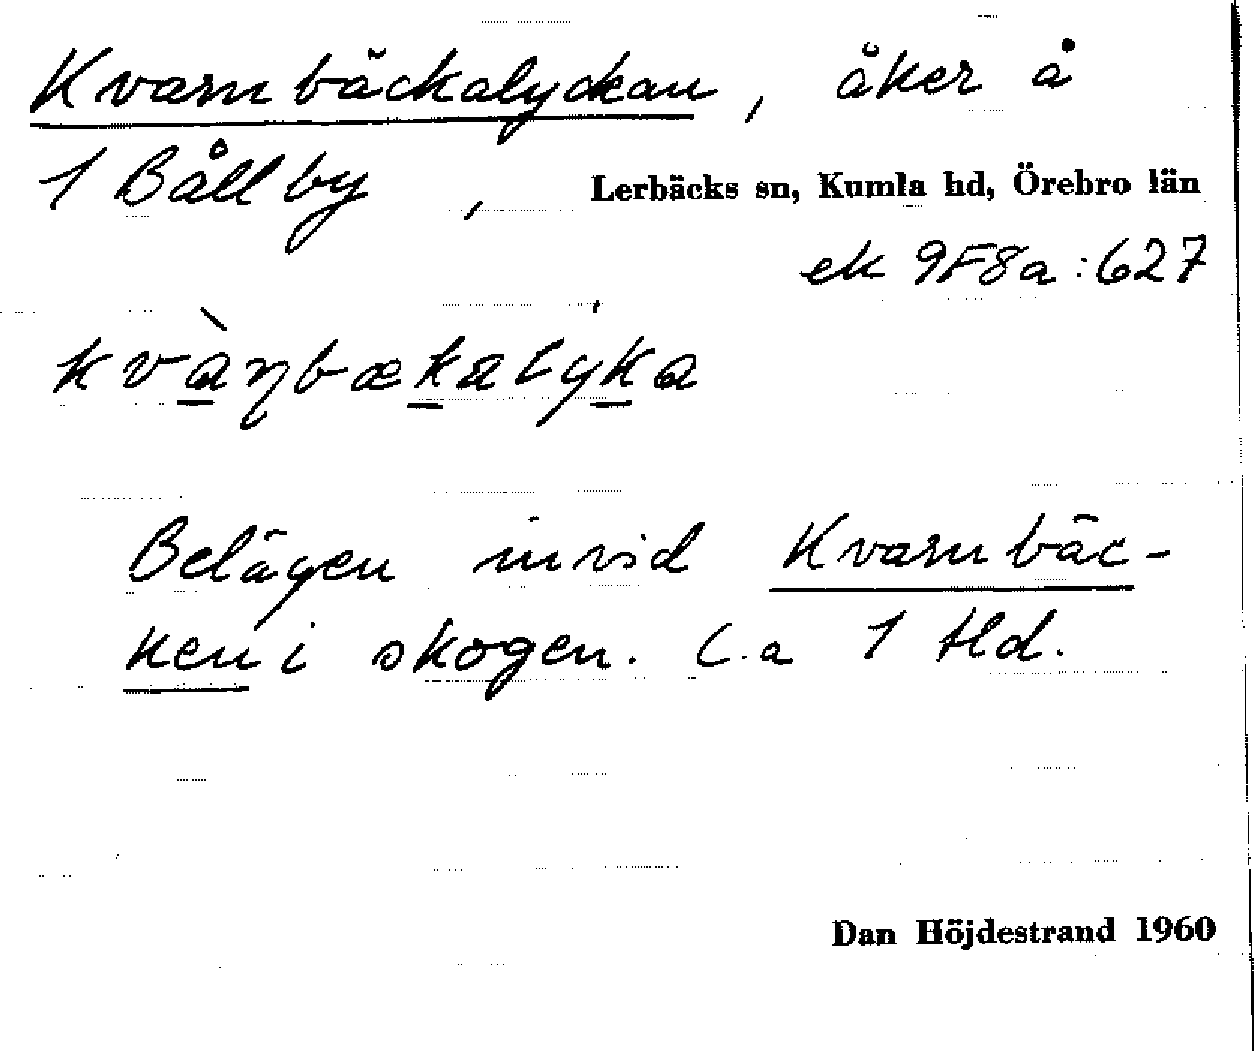 Kvarnbäckalyckan, åker å
1 Bållby, Lerbäcks sn, Kumla hd, Örebro län
ek 9F8a:627
kvàɳbækalyka
Belägen invid Kvarnbäc-
ken i skogen. C.a 1 tld.
Dan Höjdestrand 1960